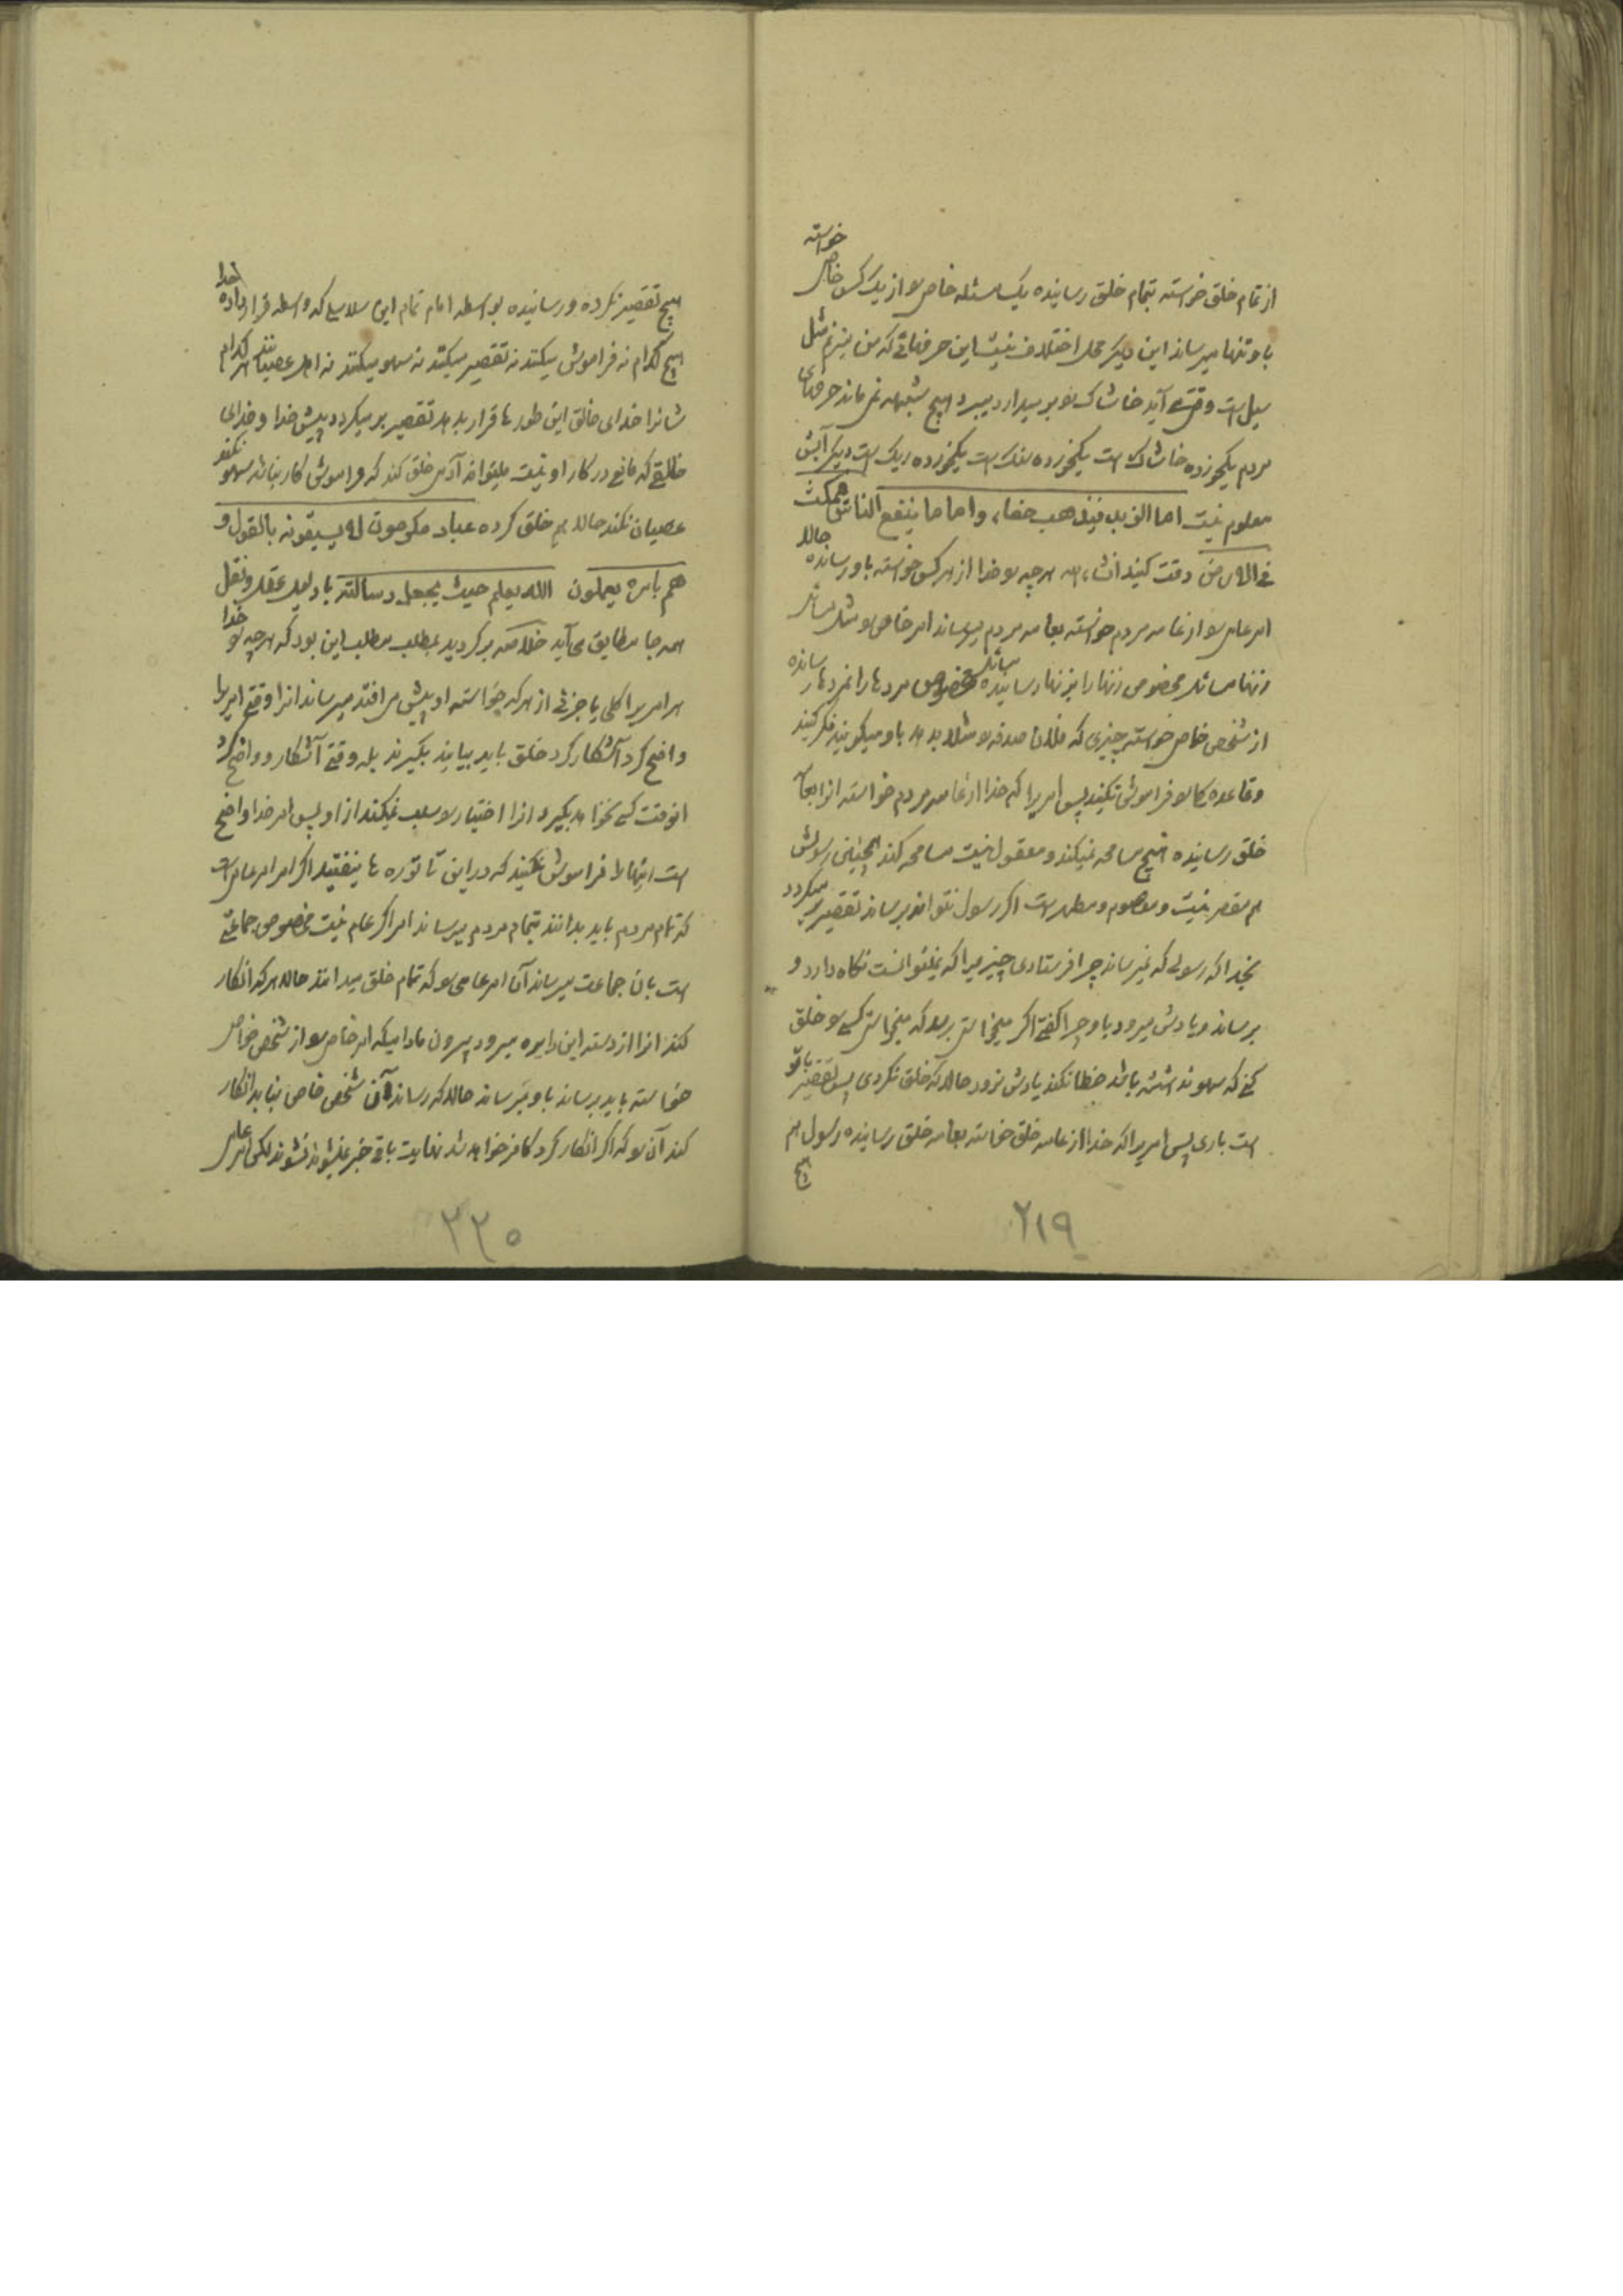 از تمام خلق خواسته بتمام خلق رسانیده یک مسئله خاص را از یک کس خاص خواسته
باو تنها میرساند این دیگر محل اختلاف نیست این حرفهائی که من میزنم مثل
سیل است وقتی آید خاشاک را بر میدارد میبرد هیچ شبهه نمی ماند حرفهای
مردم یکخورده خاشاک است یکخورده سنگ است یکخورده ریگ است دیگر آبش
معلوم نیست اما الزبد فیذهب جفاء واما ما ینفع الناس فیمکث
فی الارض دقت کنید انشاء الله هر چه را خدا از هر کس خواسته باو رسانده حالا
امر عامی را از عامه مردم خواسته بعامه مردم میرساند امر خاص را مثل مسائل
زنها مسائل مخصوص زنها را بزنها رسانیده مسائل مخصوص مردها را بمردها رسانده
از شخص خاص خواسته چیزی که فلان صدقه را مثلا بدهد باو میگویند فکر کنید
وقاعده کار را فراموش نکنید پس امریرا که خدا از عامه مردم خواسته انرا بجمیع
خلق رسانیده هیچ مسامحه نمیکند و معقول نیست مسامحه کند همچنین رسولش
هم مقصر نیست و معصوم و مطهر است اگر رسول نتواند برساند تقصیر بر میگردد
بخدا که رسولی که نمیرساند چرا فرستادی چیزیرا که نمیتوانست نگاه دارد و
برساند و یادش میرود باو چرا گفتی اگر میخواستی برسد که میخواستی کسی را خلق
کنی که سهو نداشته باشد خطا نکند یادش نرود حالا که خلق نکردی پس تقصیر با تو
است باری پس امریرا که خدا از عامه خلق خواسته بعامه خلق رسانیده رسول هم
هیچ
۲۱۹
هیچ تقصیر نکرده و رسانیده بواسطه امام تمام این سلاسلی که واسطه قرار داده خدا
هیچ کدام نه فراموش میکنند نه تقصیر میکنند نه سهو میکنند نه اهل عصیانند هر کدام
شانرا خدای خالق این طورها قرار بدهد تقصیر بر میگردد پیش خدا و خدای
خالقی که مانع در کار او نیست میتواند آدمی خلق کند که فراموش کار نباشد سهو نکند
عصیان نکند حالا هم خلق کرده عباد مکرمون لا یسبقونه بالقول و
هم بامره یعملون الله یعلم حیث یجعل رسالته با دلیل عقل و نقل
همه جا مطابق می آید خلاصه برگردید بمطلب مطلب این بود که هر چه را خدا
هر امریرا کلی یا جزئی از هر که خواسته او پیش می افتد میرساند انرا وقتی امریرا
واضح کرد آشکار کرد خلق باید بیایند بگیرند بله وقتی آشکار و واضح کرد
انوقت کسی نخواهد بگیرد انرا اختیار را سلب نمیکند از او پس امر خدا واضح
است اینها را فراموش نکنید که در این تا توره ها نیفتید اگر امر امر عامی است
که تمام مردم باید بدانند بتمام مردم میرساند امر اگر عام نیست مخصوص جماعتی
است بان جماعت میرساند آن امر عامی را که تمام خلق میدانند حالا هر که انکار
کند انرا از دسته این دایره میرود بیرون مادامیکه امر خاص را از شخص خواص
خواسته باید برساند باو میرساند حالا که رساند آن شخص خاص نباید انکار
کند آن را که اگر انکار کرد کافر خواهد شد نهایت باقی خبر نمیشوند نشوند لکن امر عامی
۲۲۰